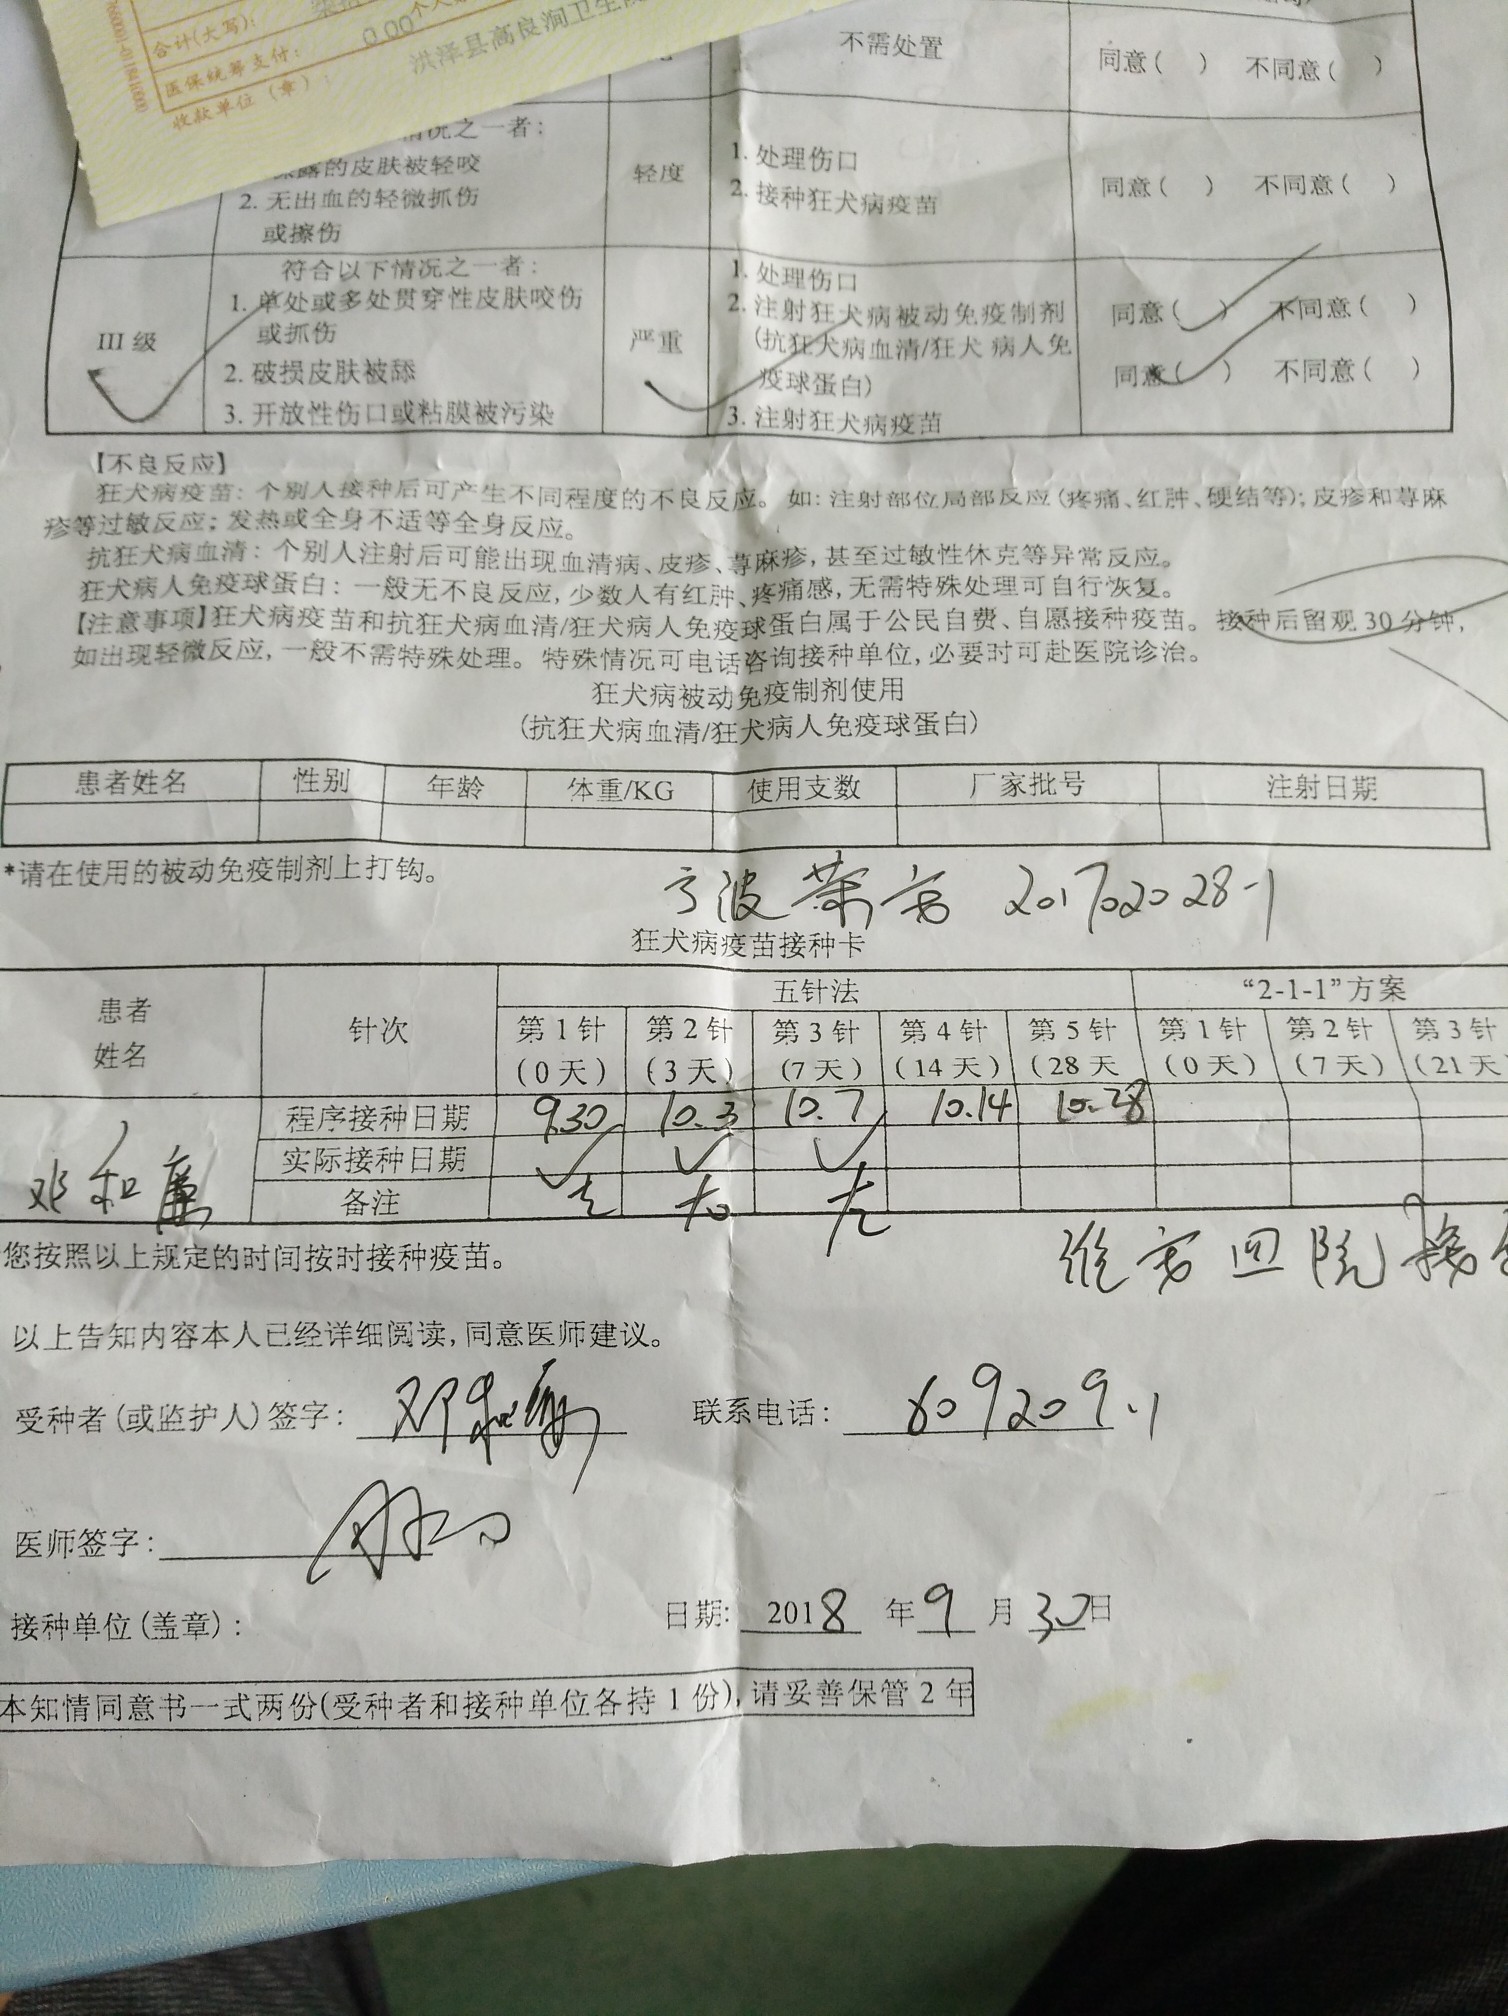 合计(大写):
医保统筹支付: 0.00
收款单位（章）: 洪泽县高良涧卫生院
不需处置 同意( ) 不同意( )
情况之一者:
露的皮肤被轻咬
2. 无出血的轻微抓伤
或擦伤
轻度
1. 处理伤口
2. 接种狂犬病疫苗
同意( ) 不同意( )
III 级
符合以下情况之一者:
1. 单处或多处贯穿性皮肤咬伤
或抓伤
2. 破损皮肤被舔
3. 开放性伤口或粘膜被污染
严重
1. 处理伤口
2. 注射狂犬病被动免疫制剂
(抗狂犬病血清/狂犬 病人免
疫球蛋白)
3. 注射狂犬病疫苗
同意( ) 不同意( )
同意( ) 不同意( )
【不良反应】
狂犬病疫苗: 个别人接种后可产生不同程度的不良反应。如: 注射部位局部反应(疼痛、红肿、硬结等); 皮疹和荨麻
疹等过敏反应; 发热或全身不适等全身反应。
抗狂犬病血清: 个别人注射后可能出现血清病、皮疹、荨麻疹, 甚至过敏性休克等异常反应。
狂犬病人免疫球蛋白: 一般无不良反应, 少数人有红肿、疼痛感, 无需特殊处理可自行恢复。
【注意事项】狂犬病疫苗和抗狂犬病血清/狂犬病人免疫球蛋白属于公民自费、自愿接种疫苗。接种后留观 30 分钟,
如出现轻微反应, 一般不需特殊处理。特殊情况可电话咨询接种单位, 必要时可赴医院诊治。
狂犬病被动免疫制剂使用
(抗狂犬病血清/狂犬病人免疫球蛋白)
患者姓名 性别 年龄 体重/KG 使用支数 厂家批号 注射日期
*请在使用的被动免疫制剂上打钩。
宁波荣安 201702028-1
狂犬病疫苗接种卡
患者
姓名
针次
五针法 “2-1-1”方案
第 1 针 第 2 针 第 3 针 第 4 针 第 5 针 第 1 针 第 2 针 第 3 针
(0 天) (3 天) (7 天) (14 天) (28 天 (0 天) (7 天) (21 天
程序接种日期 9.30 10.3 10.7 10.14 10.28
实际接种日期
邓和廉
备注 左 右 左
您按照以上规定的时间按时接种疫苗。
以上告知内容本人已经详细阅读, 同意医师建议。
受种者(或监护人)签字: 联系电话:
医师签字:
接种单位(盖章): 日期: 2018 年 9 月 30 日
本知情同意书一式两份(受种者和接种单位各持 1 份), 请妥善保管 2 年